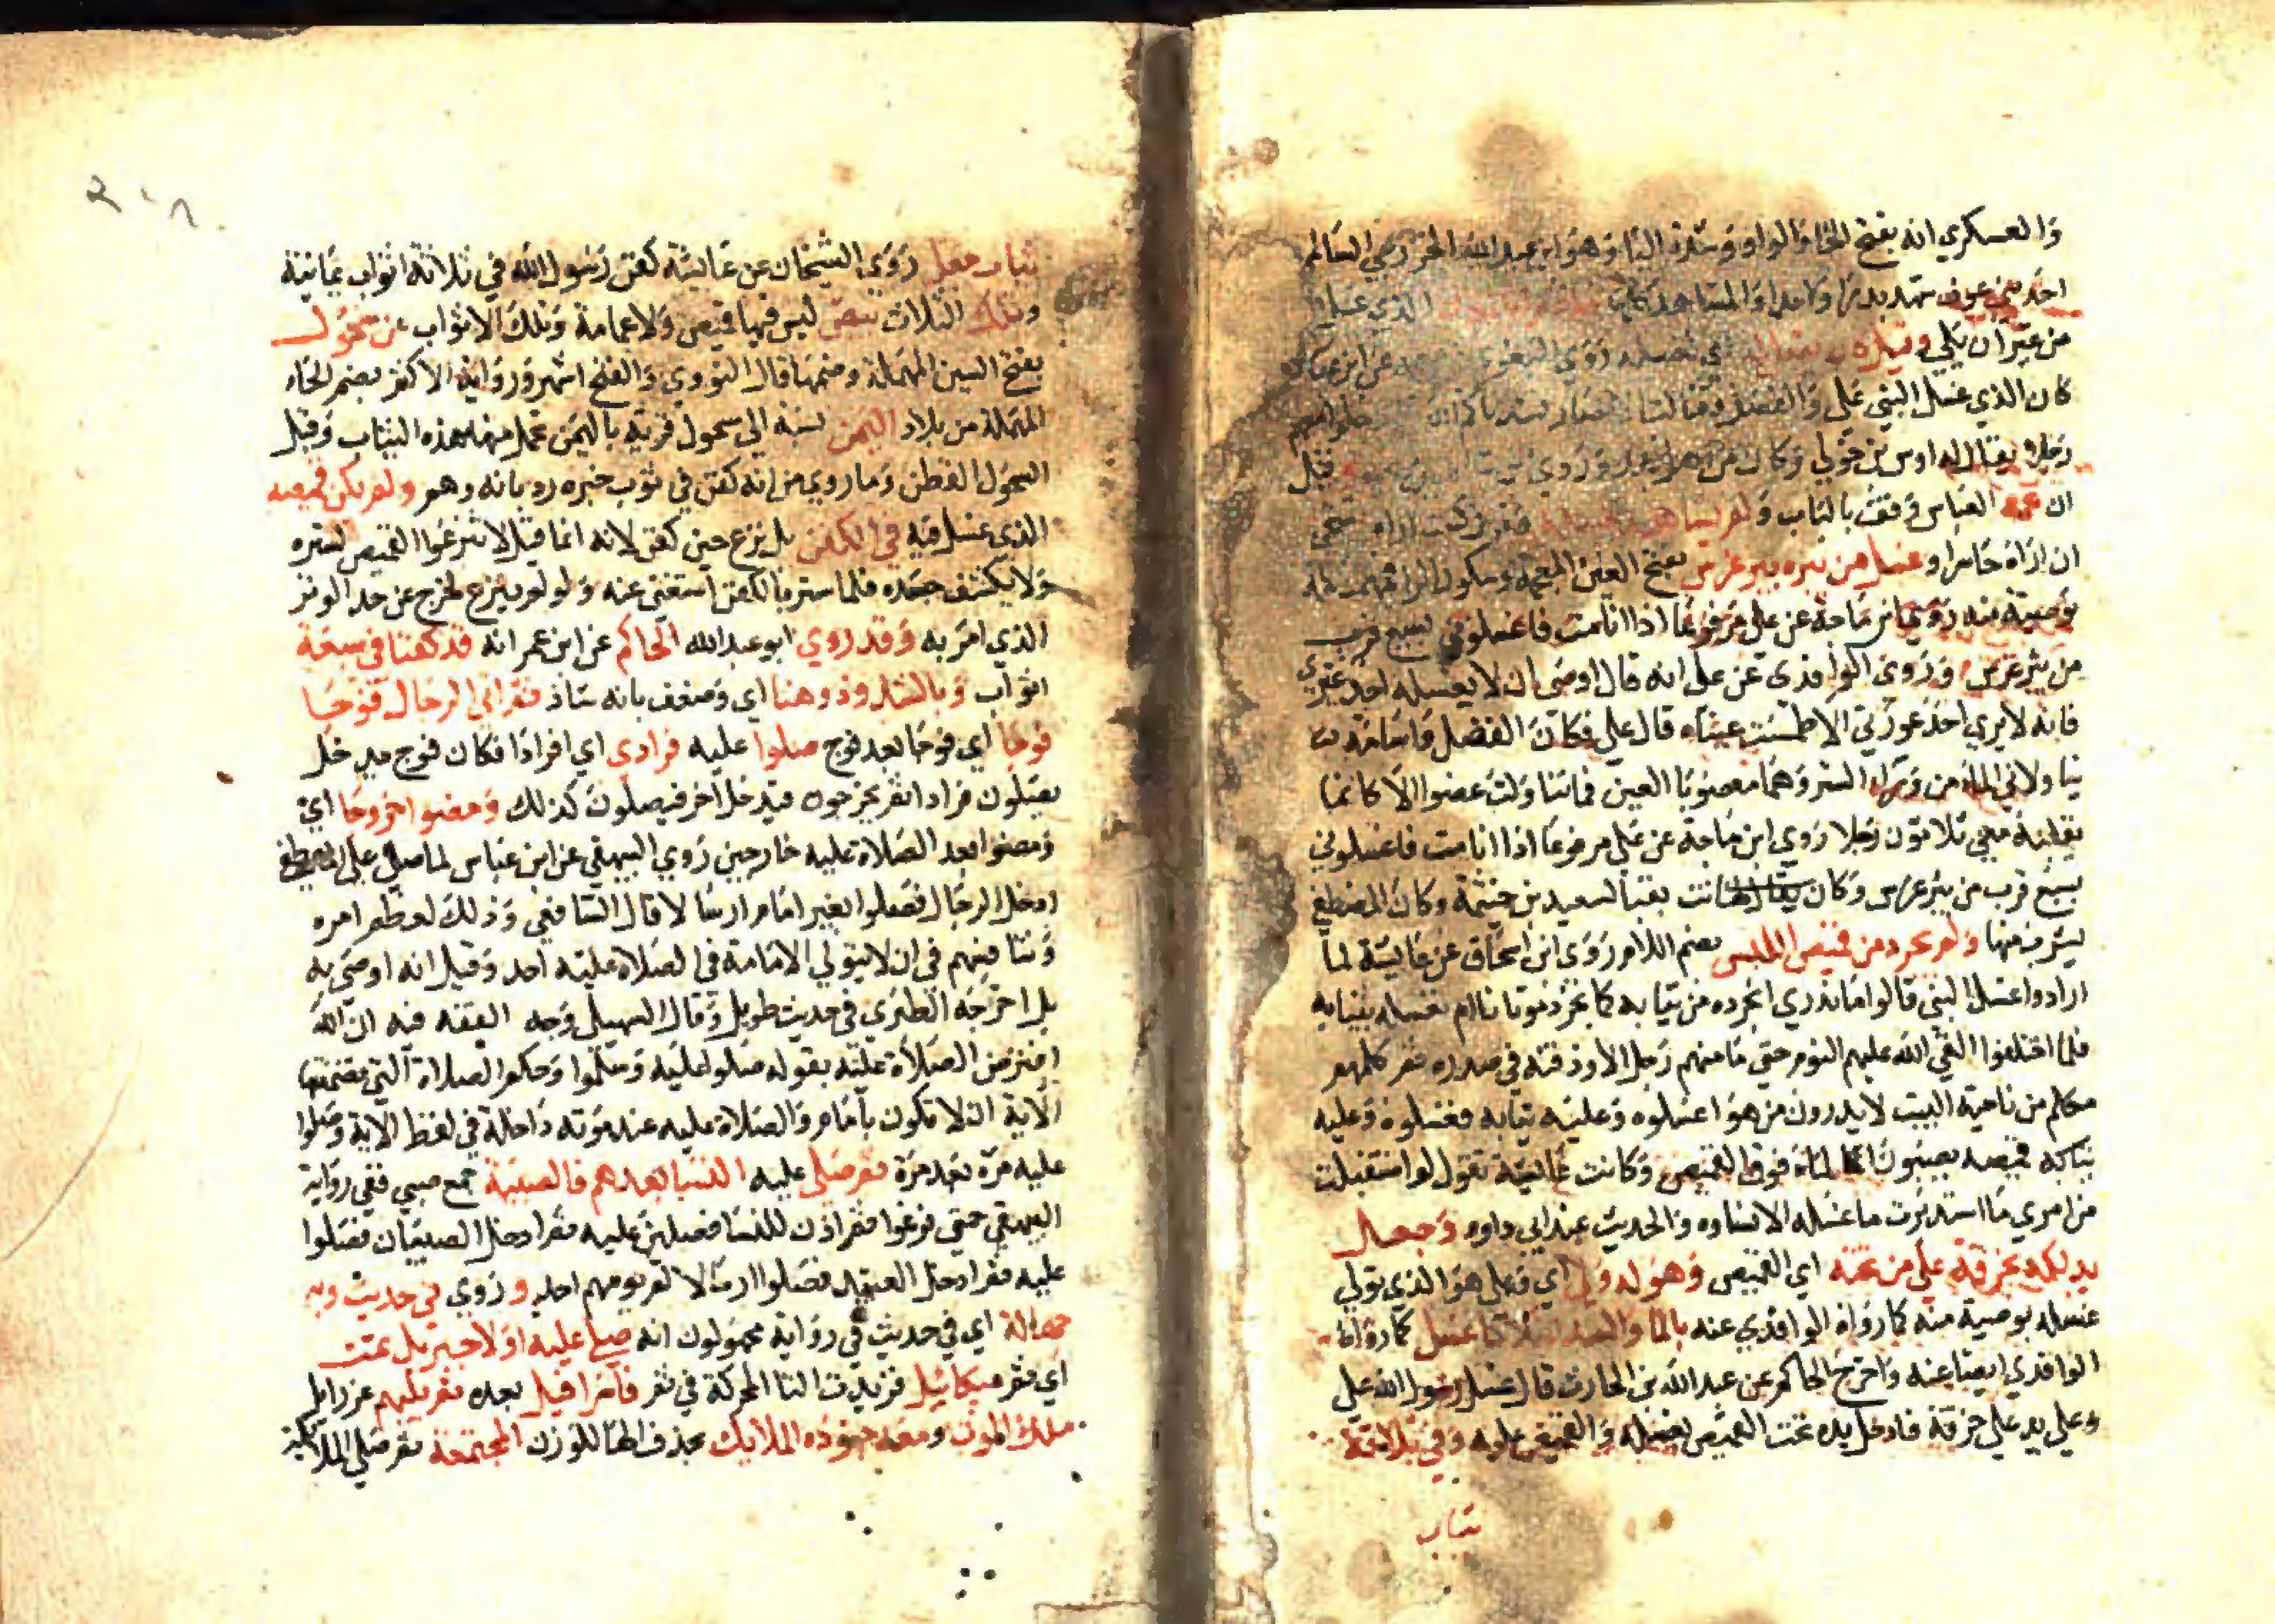 والعسكري انه بفتح الخا والواو وشدة اليا وهو ابن عبد الله الخزرجي السالمي
احد بني عوف شهد بدرا واحدا والمشاهد كلها الذي غسلوا
من غير ان يلي وقيل كان ينقل الما في تغسيله روي البغوي عن ابن عباس
كان الذي غسل النبي علي والفضل فقالت الانصار نشدناكم الله فادخلوا معهم
رجلا يقال له اوس بن خولي وكان قيل
ان عمه العباس وقف بالباب ولم يشاهد فقد كنت اراه يستحي
ان اراه حاسرا وغسل من بيره بير غرس بفتح الغين المعجمة وسكون الرا فمهملة
بوصية منه روي ابن ماجة عن علي مرفوعا اذا انا مت فاغسلوني بسبع قرب
من بئر غرس وروي الواقدي عن علي انه قال اوصى ان لا يغسله احد غيري
فانه لا يري احد عورتي الا طمست عيناه قال علي فكان الفضل واسامة
يناولاني الما من وراء الستر وهما معصوبا العين فما تناولت عضوا الا كانما
يقلبه معي ثلاثون رجلا روي ابن ماجة عن علي مرفوعا اذا انا مت فاغسلوني
بسبع قرب من بير غرس وكان يقال لها كانت بقبا لسعيد بن خيثمة وكان المصطفى
يشرب منها ولم يجرد من قميص الملبس بضم اللام روي ابن اسحاق عن عايشة لما
ارادوا غسل النبي قالوا ما ندري انجرده من ثيابه كما نجرد موتانا ام نغسله بثيابه
فلما اختلفوا القي الله عليهم النوم حتى ما منهم رجل الا وذقنه في صدره ثم كلمهم
مكلم من ناحية البيت لا يدرون من هو اغسلوه وعليه ثيابه فغسلوه وعليه
قميصه يصبون الماء فوق القميص وكانت عايشة تقول لو استقبلت
من امري ما استدبرت ما غسله الا نساوه والحديث عند ابي داود وجعل
يدلكه بخرقة علي من تحته اي القميص وهو له ولي اي وعلي هو الذي تولي
غسله بوصية منه كما رواه الواقدي عنه بالما والسدر ثلاثا غسل كما رواه
الواقدي ايضا عنه واخرج الحاكم عن عبد الله بن الحارث قال غسل رسول الله علي
وعلي يد علي خرقة فادخل يده تحت القميص يغسله والقميص عليه وفي ثلاثة
ثياب
٢٠٨
ثياب جعل روي الشيخان عن عايشة كفن رسول الله في ثلاثة اثواب يمانية
وتلك الثلاث بيض ليس فيها قميص ولا عمامة وتلك الاثواب من سحول
بفتح السين المهملة وضمها قال النووي والفتح اشهر ورواية الاكثر بضم الحاء
المهملة من بلاد اليمن نسبة الى سحول قرية باليمن تحمل منها هذه الثياب وقيل
السحول القطن وما روي من انه كفن في ثوب حبره رد بانه وهم ولم يكن قميصه
الذي غسل فيه في الكفن بل نزع حين كفن لانه انما قيل لا تنزعوا القميص لستره
ولا يكشف جسده فلما ستر بالكفن استغني عنه ولو لم ينزع لخرج عن حد الوتر
الذي امر به وقد روي ابو عبد الله الحاكم عن ابن عمر انه قد كفنا في سبعة
اثواب وبالشذوذ وهنا اي وضعف بانه شاذ ثم اتي الرجال فوجا
فوجا اي فوجا بعد فوج صلوا عليه فرادى اي افرادا فكان فوج يدخل
يصلون فرادا ثم يخرجون فيدخل اخر فيصلون كذلك ومضوا خروجا اي
ومضوا بعد الصلاة عليه خارجين روي البيهقي عن ابن عباس لما صلي على المصطفى
ادخل الرجال فصلوا بغير امام ارسالا قال الشافعي وذلك لعظم امره
وتنافسهم في ان لا يتولي الامامة في الصلاة عليه احد وقيل انه اوصى به
بل اخرجه الطبري في حديث طويل وقال السهيلي وجه الفقه فيه ان الله
افترض الصلاة عليه بقوله صلوا عليه وسلموا وحكم الصلاة التي تضمنتها
الاية ان لا تكون بامام والصلاة عليه عند موته داخلة في لفظ الاية وصلوا
عليه مرة بعد مرة ثم صلى عليه النسا بعدهم فالصبية جمع صبي ففي رواية
البيهقي حتى فرغوا ثم اذن للنسا فصلين عليه ثم ادخل الصبيان فصلوا
عليه ثم ادخل العبيد فصلوا ارسالا لم يومهم احد وروي في حديث وبه
جهالة اي في حديث في رواية مجهولون انه صلى عليه اولا جبريل ثمت
اي ثم ميكائيل فزيدت التا المحركة في ثم فاسرافيل بعده ثم يليهم عزرايل
ملك الموت ومعه جنوده الملايك بحذف الها للوزن المجتمعة ثم صلي الملايكة